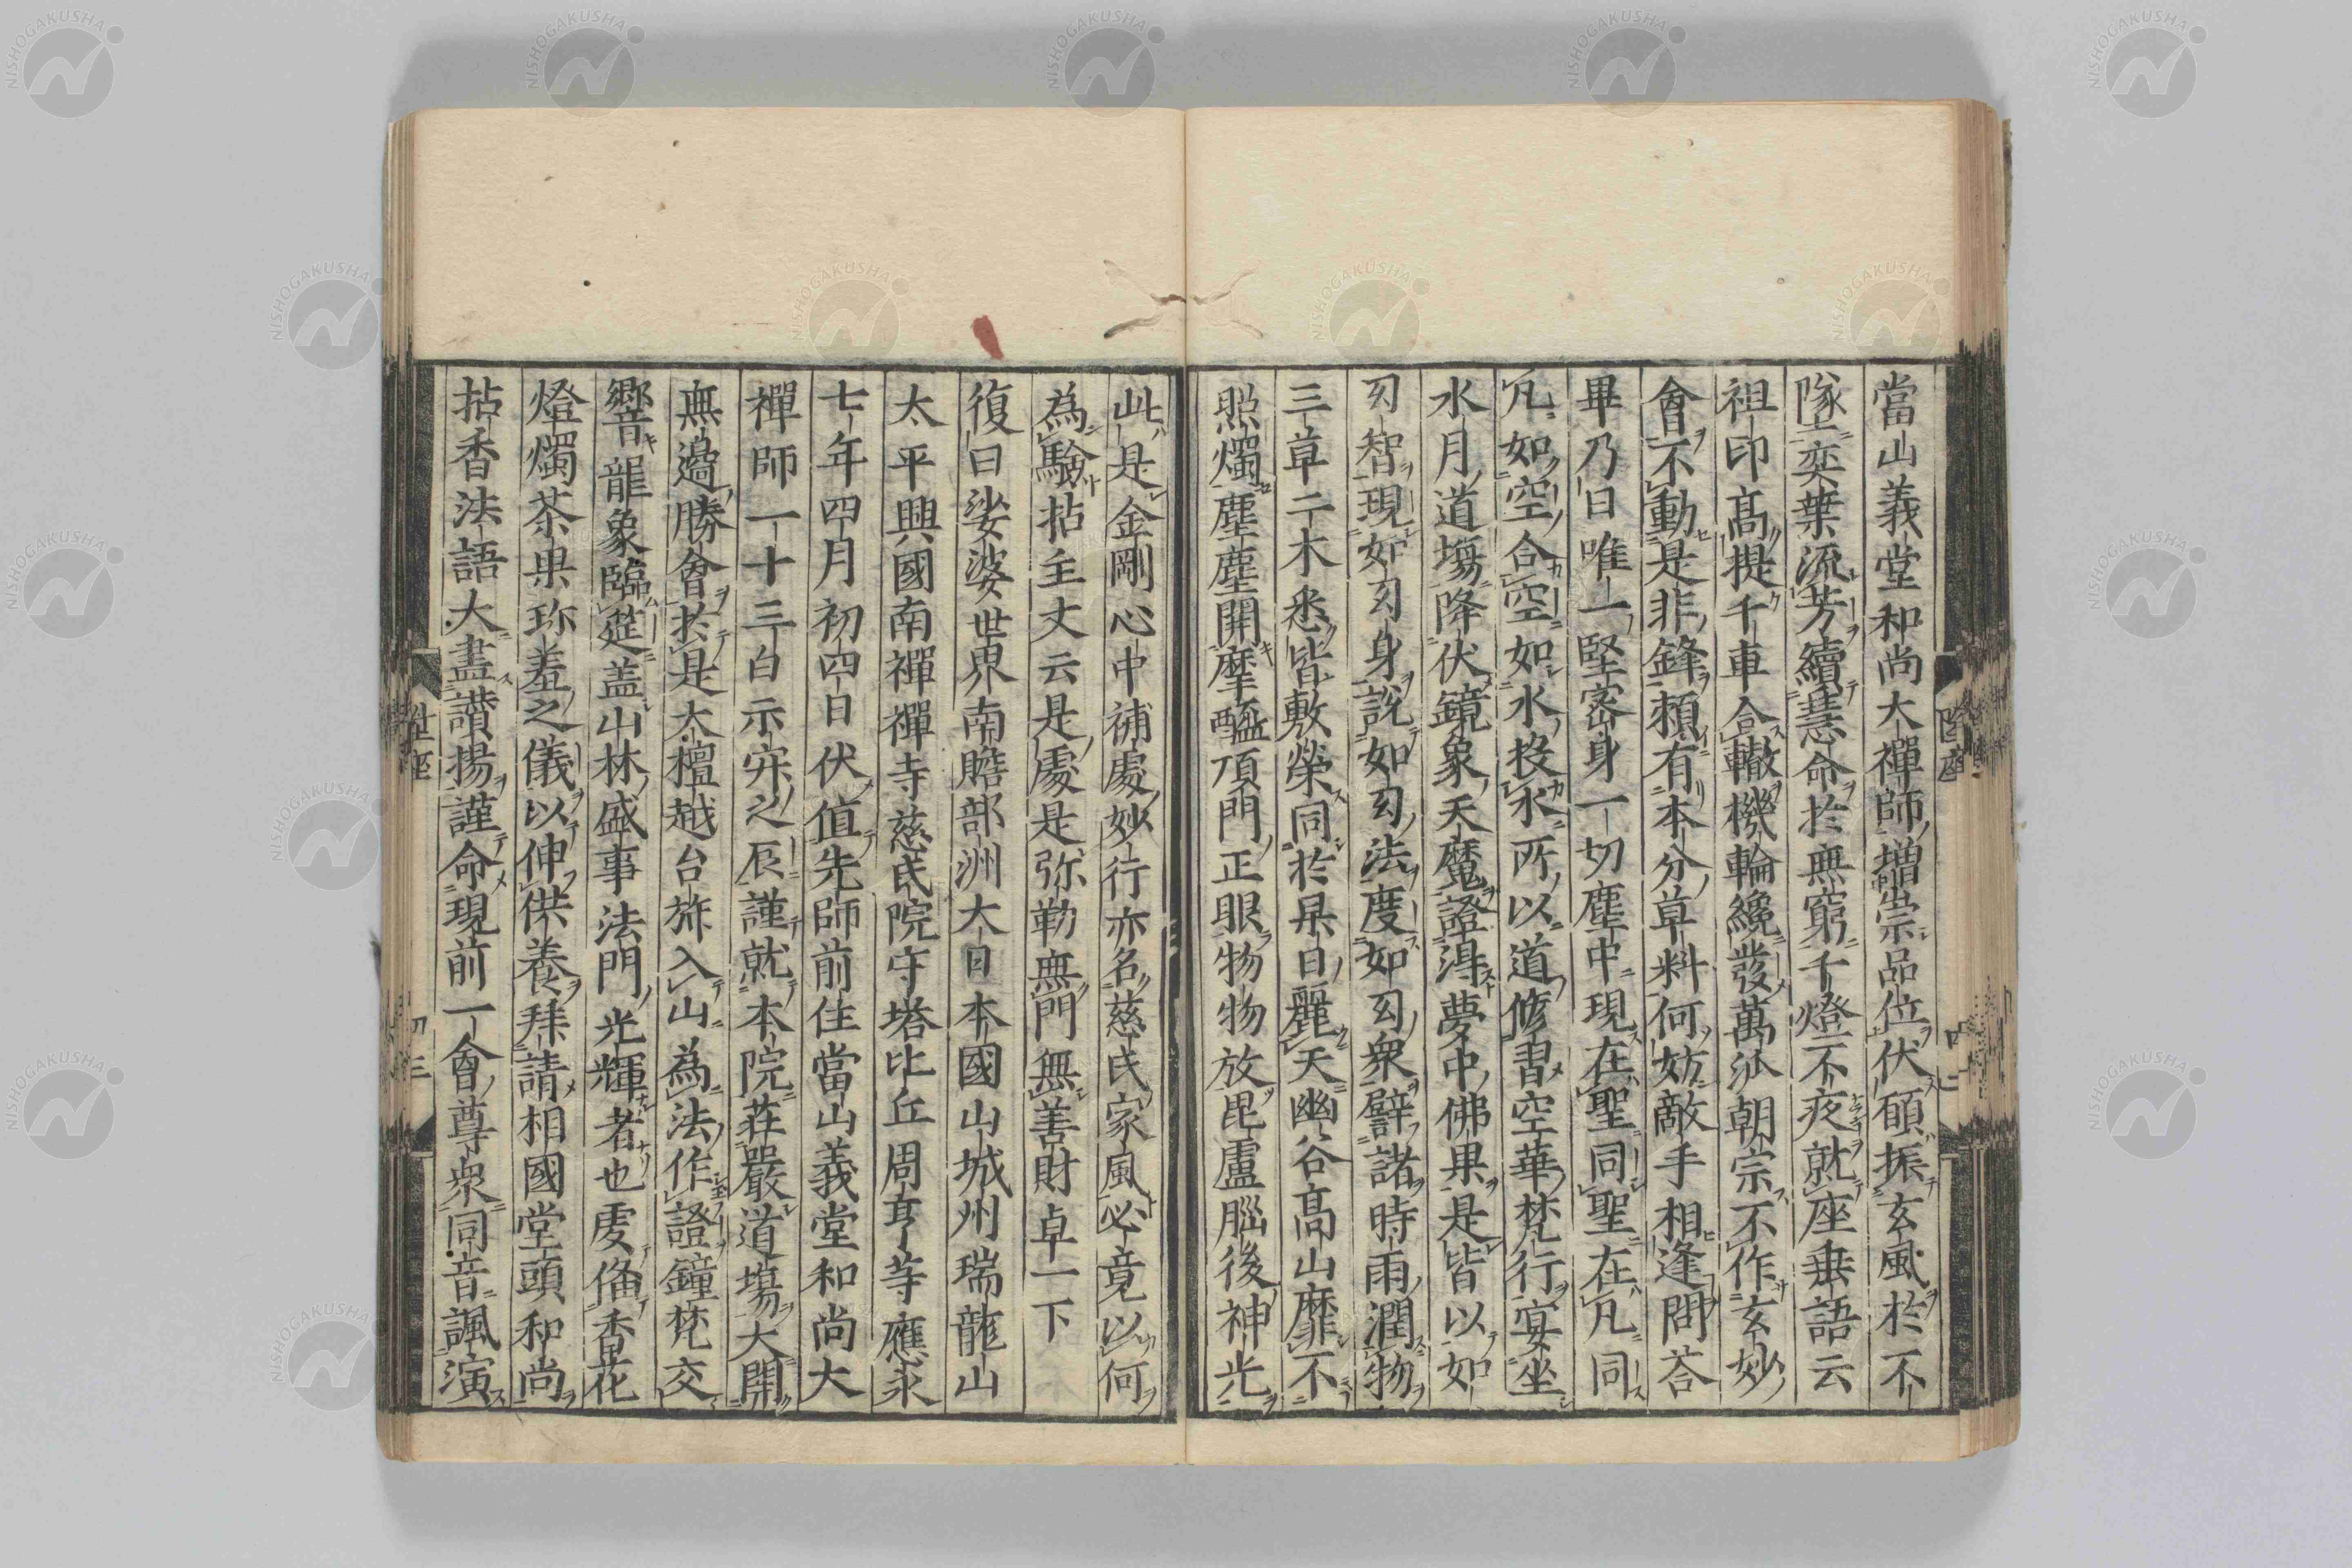 當山義堂和尚大禪師増崇品位伏願振玄風於不
墜奕葉流芳續慧命於無窮千燈不夜就座垂語云
祖印高提千車合轍機輪纔發萬派朝宗不作玄妙
會不動是非鋒頼有本分草料何妨敵手相逢問荅
畢乃曰唯一堅密身一切塵中現在聖同聖在凡同
凡如空合空如水投水所以道修習空華梵行宴坐
水月道塲降伏鏡象天魔證得夢中佛果是皆以如
幻智現如幻身説如幻法度如幻衆譬諸時雨潤物
三草二木悉皆敷榮同於杲日麗天幽谷高山靡不
照燭塵塵開摩醯頂門正眼物物放毘盧腦後神光
此是金剛心中補處妙行亦名慈氏家風必竟以何
為驗拈主丈云是處是弥勒無門無善財卓一下
復曰娑婆世界南贍部洲大日本國山城州瑞龍山
太平興國南禪禪寺慈氏院守塔比丘周亨等應永
七年四月初四日伏值先師前住當山義堂和尚大
禪師一十三白示寂之辰謹就本院莊嚴道塲大開
無邊勝會於是大檀越台旆入山為法作證鐘梵交
響龍象臨筵蓋山林盛事法門光輝者也處俻香花
燈燭茶果珎羞之儀以伸供養拜請相國堂頭和尚
拈香法語大盡讃揚謹命現前一會尊衆同音諷演
NISHOGAKUSHA